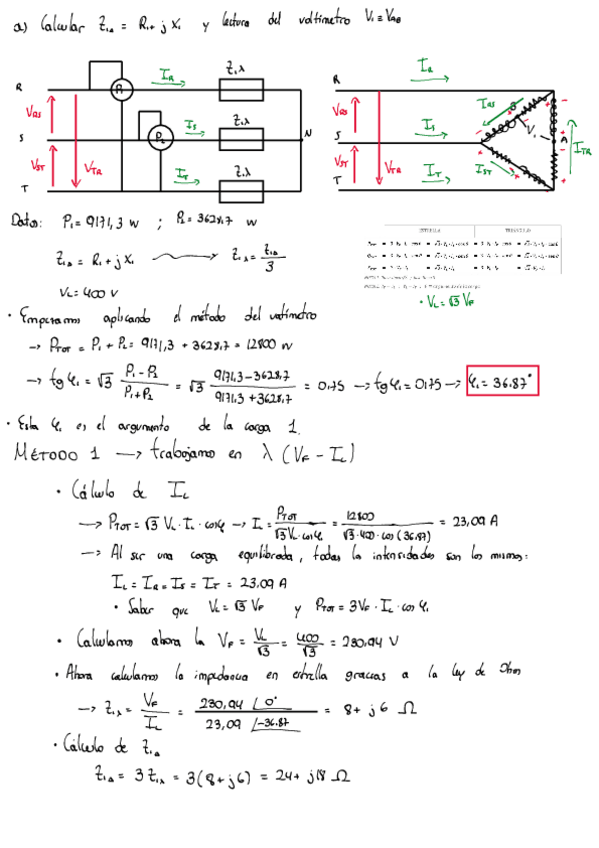 a) Calcular Z₁Δ = R₁ + j X₁ y lectura del voltímetro V₁ ≡ VAB
R
S
T
P₁
P₂
IR
IS
IT
VRS
VST
VTR
Z₁λ
Z₁λ
Z₁λ
N
R
S
T
IR
IS
IT
VRS
VST
VTR
IRS
IST
ITR
V₁
A
B
Datos: P₁ = 9171,3 W ; P₂ = 3628,7 W
Z₁Δ = R₁ + j X₁ → Z₁λ = Z₁Δ / 3
VL = 400 V
• VL = √3 VF
• Empezamos aplicando el método del vatímetro
→ PTOT = P₁ + P₂ = 9171,3 + 3628,7 = 12800 W
→ tg φ₁ = √3 (P₁ - P₂)/(P₁ + P₂) = √3 (9171,3 - 3628,7)/(9171,3 + 3628,7) = 0,75 → tg φ₁ = 0,75 → φ₁ = 36.87°
• Esta φ₁ es el argumento de la carga 1.
MÉTODO 1 → trabajamos en λ (VF - IL)
• Cálculo de IL
→ PTOT = √3 VL · IL · cos φ → IL = PTOT/(√3 VL · cos φ₁) = 12800/(√3 · 400 · cos (36.87)) = 23,09 A
→ Al ser una carga equilibrada, todas la intensidades son las mismas:
IL = IR = IS = IT = 23.09 A
• Saber que VL = √3 VF y PTOT = 3VF · IL · cos φ₁
• Calculamos ahora la VF = VL/√3 = 400/√3 = 230,94 V
• Ahora calculamos la impedancia en estrella gracias a la ley de Ohm
→ Z₁λ = VF/IL = 230,94 ∠0° / 23,09 ∠-36.87 = 8 + j 6 Ω
• Cálculo de Z₁Δ
Z₁Δ = 3 Z₁λ = 3(8 + j6) = 24 + j18 Ω